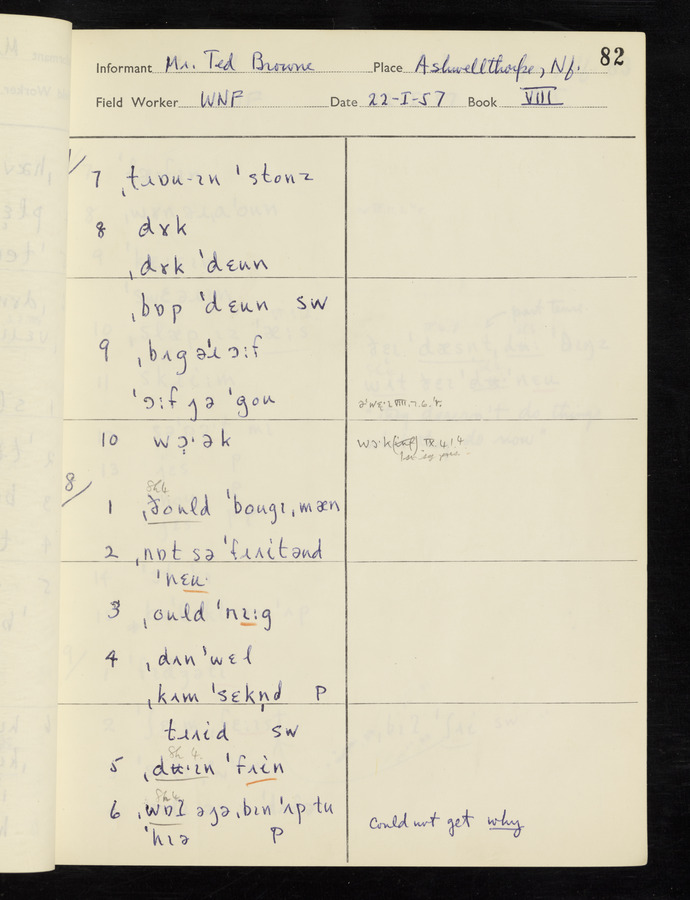 82
Informant Mr. Ted Browne Place Ashwellthorpe, Nf.
Field Worker WNF Date 22-I-57 Book VIII
7 ˌtɹɒu-ɪn ˈstonz
8 dɤk
ˌdɤk ˈdɛun
ˌbɒp ˈdɛun SW
9 ˌbɪg əɪ ɔ:f
ˈɔ:f ɟə ˈgou
10 wɔ̣·ək
8/
1 ˌðould ˈbougɪˌmæn
2 ˌnɒt sə ˈfɹɹitənd
ˈnɛu·
3 ˌould ˈnɪ:g
4 ˌdɪnˈwɛl
ˌkɪm ˈsɛkn̩d P
tɹɹid SW
5 ˌdʉ·ɪn ˈfɹɛ̈n
6 ˌwɒI əɟəˌbɪn ˈɹp tu
ˈhɪə P
could not get why